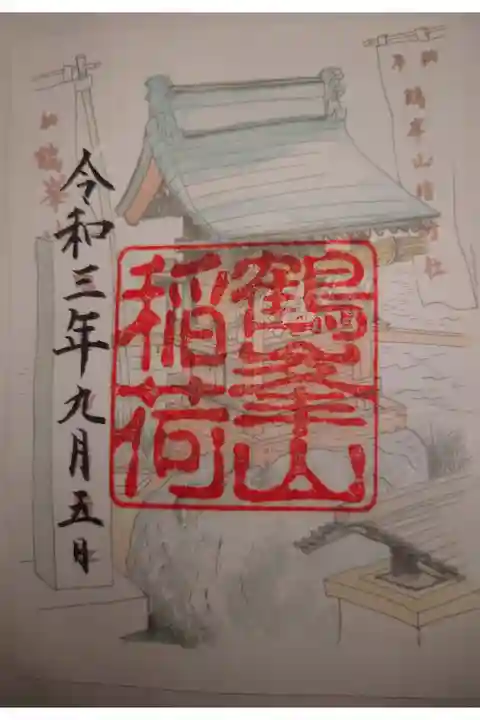 奉納 鶴峯山稲荷社
鶴峯山
稲荷
令和三年九月五日
鶴峯